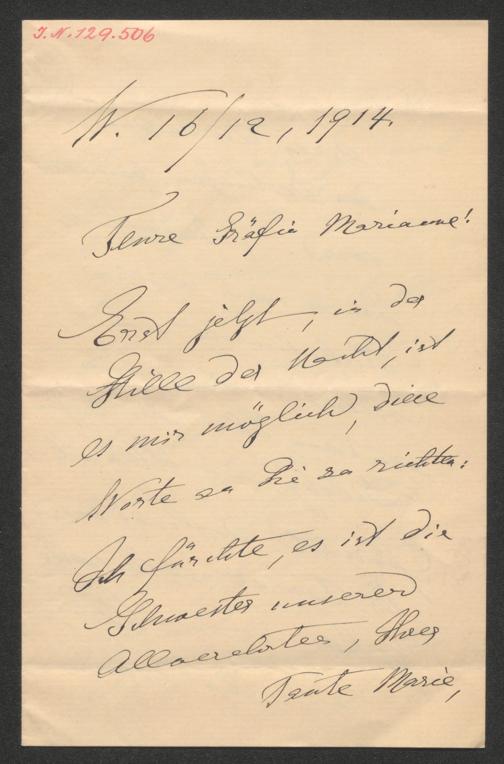 J.N. 129.506
W. 16/12, 1914.
Teure Gräfin Marianne!
Erst jetzt, in der
Stille der Nacht, ist
es mir möglich, diese
Worte an Sie zu richten:
Ich fürchte, es ist die
Schwester unserer
Allverehrten, Ihrer
Tante Marie,